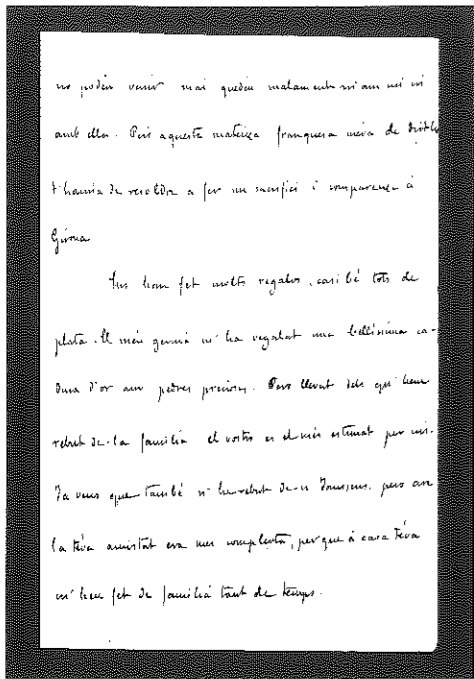 no podeu venir mai quedeu malament ni am mi ni
amb ella. Però aquesta mateixa franquesa meva de dir-t'ho
t'hauria de resoldre a fer un sacrifici i compareixe á
Girona
Ens hem fet molts regalos, casi bé tots de
plata. El meu germá m'ha regalat una bellíssima ca-
dena d'or am pedres precioses. Pero llevat dels qu'hem
rebut de la familia el vostre es el més estimat per mi.
Ja veus que també n'he rebut de-n pero am
la téva amistat era mes complerta, perque á casa téva
m'heu fet de familia tant de temps.